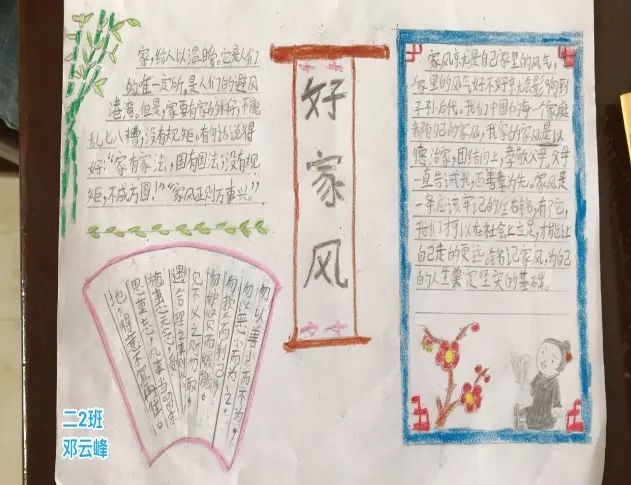 家,给人以温暖。它是人们
的唯一定所,是人们的避风
港湾。但是,家要有家的样子,不能
乱七八糟,没有规矩。有句话说得
好:“家有家法,国有国法,”没有规
矩,不成方圆!”“家风正则万事兴。”
好家风
家风就是自己家里的风气,
家里的风气好不好就会影响到
子孙后代。我们中国的每一个家庭
都有自己的家风,我家的家风是以
德治家,团结向上,孝敬父母,父母
一直告诫我,百善孝为先。家风是
一条应该牢记的座右铭,有了它,
我们才可以在社会上立足,才能让
自己走的更远,铭记家风,为自己
的人生奠定坚实的基础。
勿以善小而不为,
勿以恶小而为之。
勿损人而利己,
勿妒贤而嫉能。
见不义之财勿取,
遇合理之事则从。
二2班
邓云峰